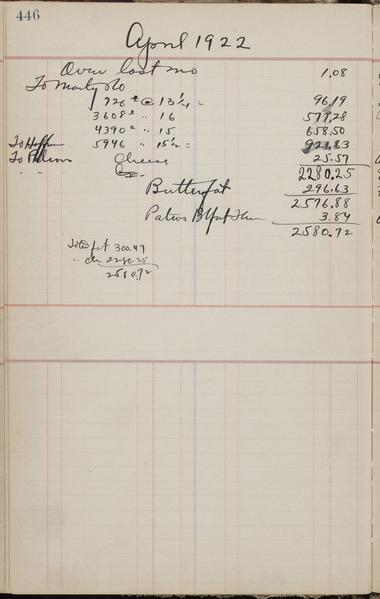 446
April 1922
Over last mo 1.08
To Marty Co
726# @ 13 1/4 = 96.19
3608# " 16 577.28
4390# " 15 658.50
To 5946 " 15 1/2 = 921.63
To Patrons Cheese 25.57
" " " 2280.25
Butterfat 296.63
2576.88
Patrons B fat 3.84
2580.72
Total fat 300.47
" Ch 2280.25
2580.72